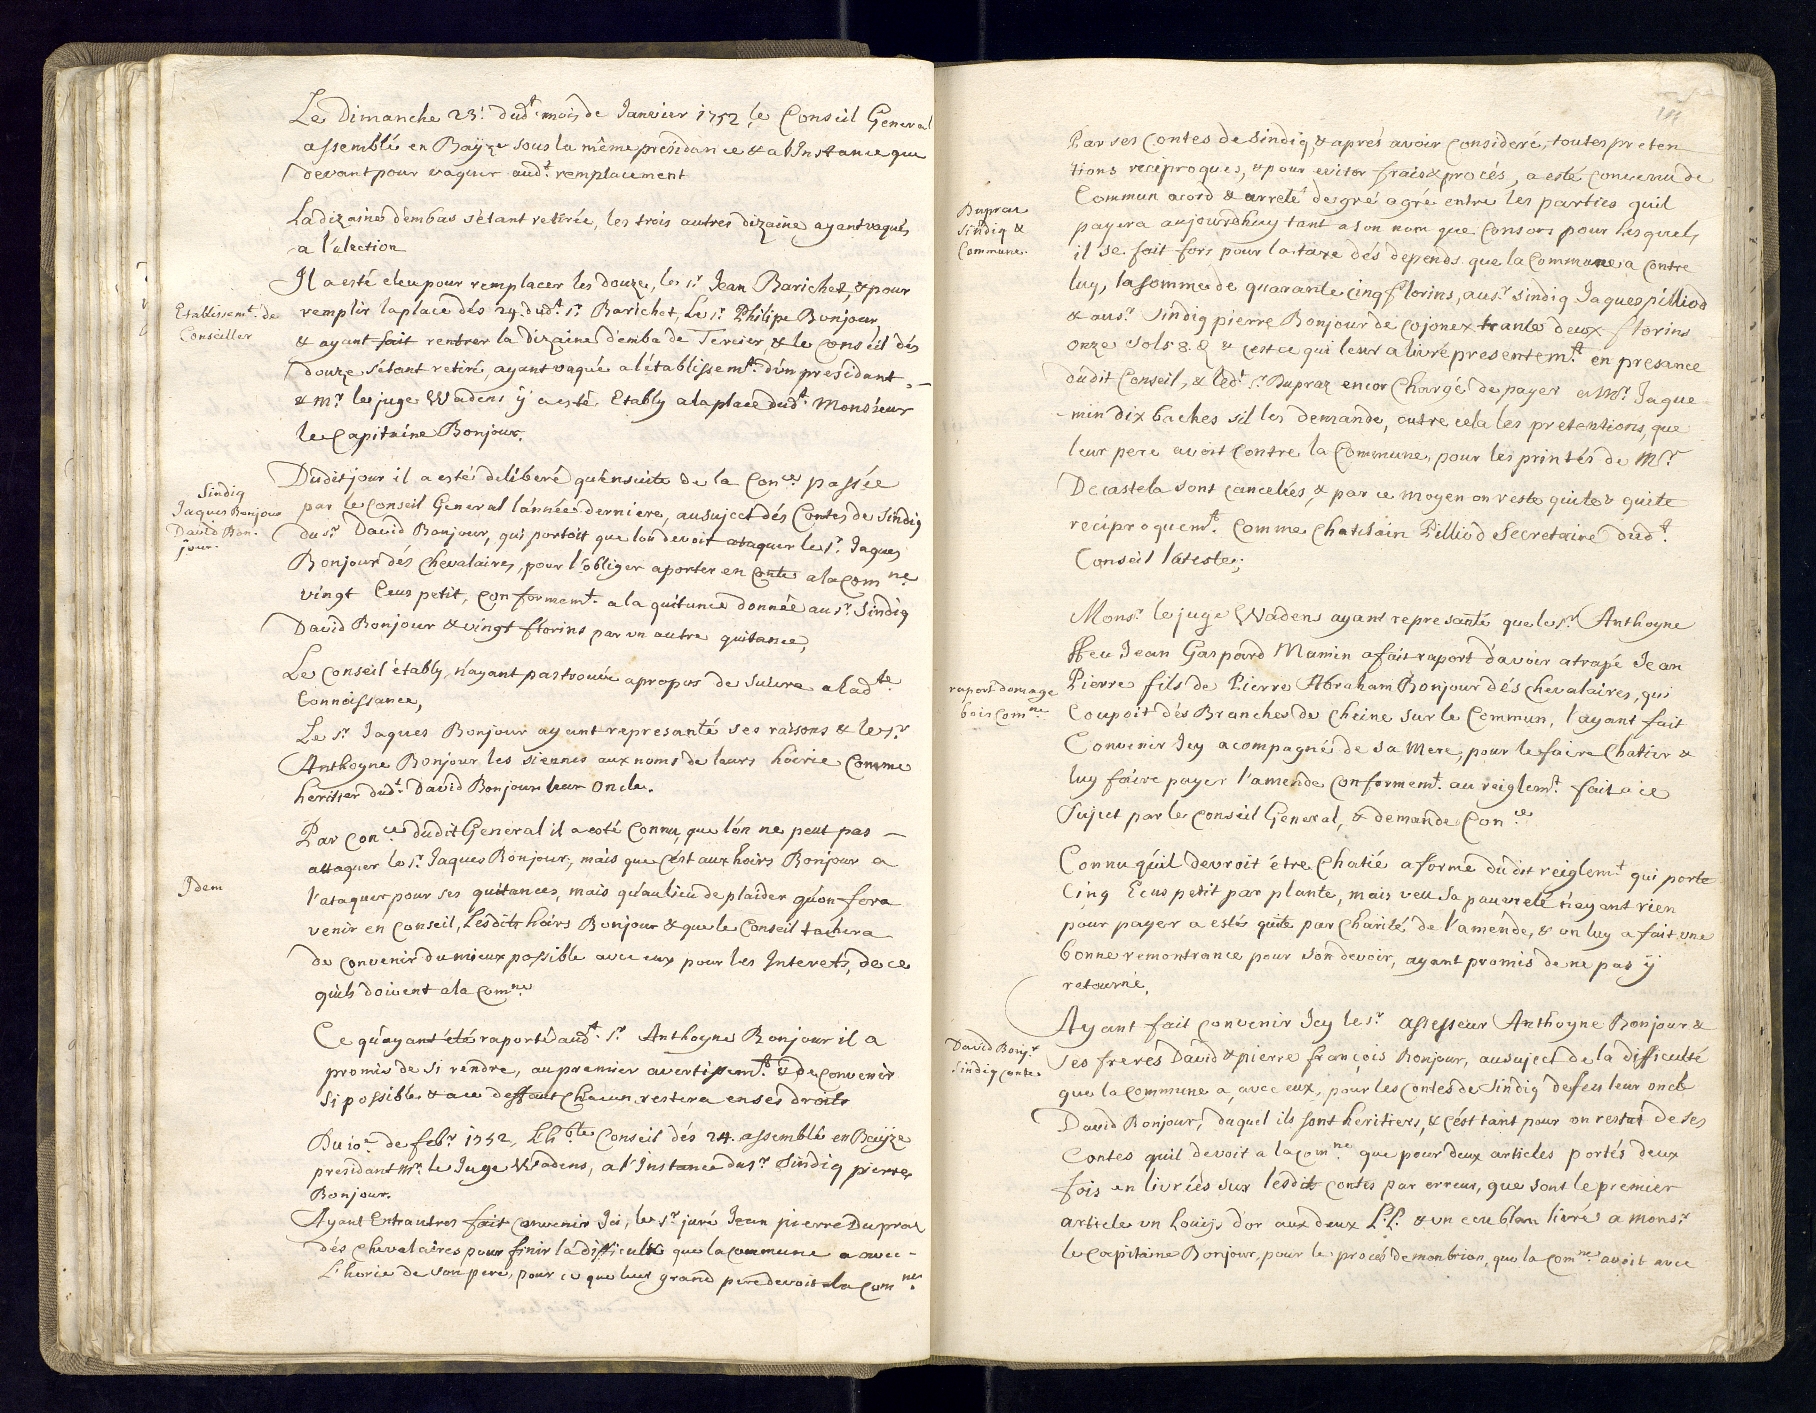 Le Dimanche 23.e dudt. mois de Janvier 1752, le Conseil General
assemblé en Baÿze sous la même presidance & a l'Instance que
devant pour vaquer audt. remplacement
La dizaine d'embas s'etant retirée, les trois autres dizaine ayant vaqués
a l'élection
Il a esté eleu pour remplacer les douze, le sr. Jean Barichet, & pour
Etablissemt. de
Conseiller
remplir la place dés 24. dudt. sr. Barichet, Le sr. Philipe Bonjour,
& ayant fait rentrer la dizaine d'emba de Tercier & le Conseil dés
douze s'étant retiré, ayant vaqué a l'établissemt. d'un presidant,
& mr. le juge Wadens ÿ a esté Etably a la place dudt. Monsieur
le Capitaine Bonjour.
Sindiq
Jaques Bonjour
David Bon-
jour.
Dudit jour il a esté deliberé qu'ensuite de la Conce. passée
par le Conseil General l'année derniere, au sujet dés Contes de Sindiq
du sr. David Bonjour, qui portoit que l'on devoit ataquer le sr. Jaques
Bonjour dés Chevalaires, pour l'obliger aporter en Conte a la Comne.
vingt Ecus petit, conformemt. a la quitance donnée au sr. Sindiq
David Bonjour & vingt florins par un autre quitance,
Le Conseil étably, n'ayant pas trouvé apropos de suivre a ladte.
Connoissance,
Le sr. Jaques Bonjour ayant represanté ses raisons & le sr.
Anthoyne Bonjour les siennes aux noms de leurs hoirie Comme
heritier dudt. David Bonjour leur oncle.
Par Conce. dudit General il a esté Connu, que l'on ne peut pas
attaquer le sr. Jaques Bonjour, mais que c'est aux hoirs Bonjour a
Idem
l'ataquer pour ses quitances, mais qu'au lieu de plaider qu'on fera
venir en Conseil, Lesdits hoirs Bonjour & que le Conseil tachera
de convenir du mieux possible avec eux pour les Interets, de ce
qu'ils doivent a la Comne.
Ce qu'ayant été raporté audt. sr. Anthoyne Bonjour il a
promis de si rendre, au premier avertissemt. & de convenir
si possible & a ce deffaut Chacun restera en ses droits
Du 10e. de febr. 1752, L'hble. Conseil dés 24. assemblé en Baÿze
presidant mr. le Juge Wadens, a l'Instance du sr. Sindiq pierre
Bonjour.
Ayant Entrautres fait convenir Ici, le sr. juré Jean pierre Dupraz
dés Chevalaires pour finir la difficulté que la commune a avec
L'horie de son pere, pour ce que leur grand pere devoit a la Comne.
Par ses Contes de Sindiq, & aprés avoir Consideré, toutes preten
tions reciproques, & pour eviter frais & procés, a esté Convenu de
Commun acord & arreté de gré agré entre les parties quil
Dupraz
Sindiq &
Commune.
payera aujourdhuy tant a son nom que Consors pour lesquels,
il se fait fors pour la taxe dés depends que la Commune a contre
luy, la somme de quarante cinq florins, au sr. Sindiq Jaques pilliod
& au sr. Sindiq pierre Bonjour de Cojonex trante deux florins
onze sols 8. & c'est ce qui leur a livré presentemt. en presance
dudit Conseil, & ledt. sr. Dupraz encor Chargé de payer a Mr. Jaque
min dix baches sil les demande, outre cela les pretentions, que
leur pere avoit contre la Commune, pour les printés de Mr.
Decastela sont cancelées, & par ce moyen on reste quite & quite
reciproquemt. Comme Chatelain Pilliod Secretaire dudt.
Conseil l'ateste;
Monsr. le juge Wadens ayant represanté que le sr. Anthoyne
ffeu Jean Gaspard Mamin a fait raport d'avoir atrapé Jean
raport domage
bois Comne.
Pierre fils de Pierre Abraham Bonjour dés Chevalaires, qui
Coupoit dés Branches de Cheine sur le Commun, l'ayant fait
Convenir Icy acompagné de sa Mere, pour le faire Chatier &
luy faire payer l'amende conformemt. au reiglemt. fait a ce
sujet par le Conseil General, & demande Conce.
Connu qu'il devroit étre Chatié a forme dudit reiglemt. qui porte
Cinq Ecus petit par plante, mais veu sa pauvreté n'ayant rien
pour payer a esté quite par Charité de l'amende, & on luy a fait une
bonne remontrance pour son devoir, ayant promis de ne pas ÿ
retourné,
Ayant fait convenir Icy le sr. assesseur Anthoyne Bonjour &
David Bonjr.
Sindiq conte
ses freres David & pierre françois Bonjour, au sujet de la difficulté
que la Commune a, avec eux, pour les Contes de Sindiq de feu leur oncle
David Bonjour, duquel ils sont heritiers, & c'ést tant pour on restat de ses
Contes quil devoit a la Comne. que pour deux articles portés deux
fois en livrées sur lesdit contes par erreur, que sont le premier
article un Louijs d'or aux deux L.L. & un ecu blanc livré a monsr.
le Capitaine Bonjour, pour le procés de monbrion, que la Comne. avoit avec